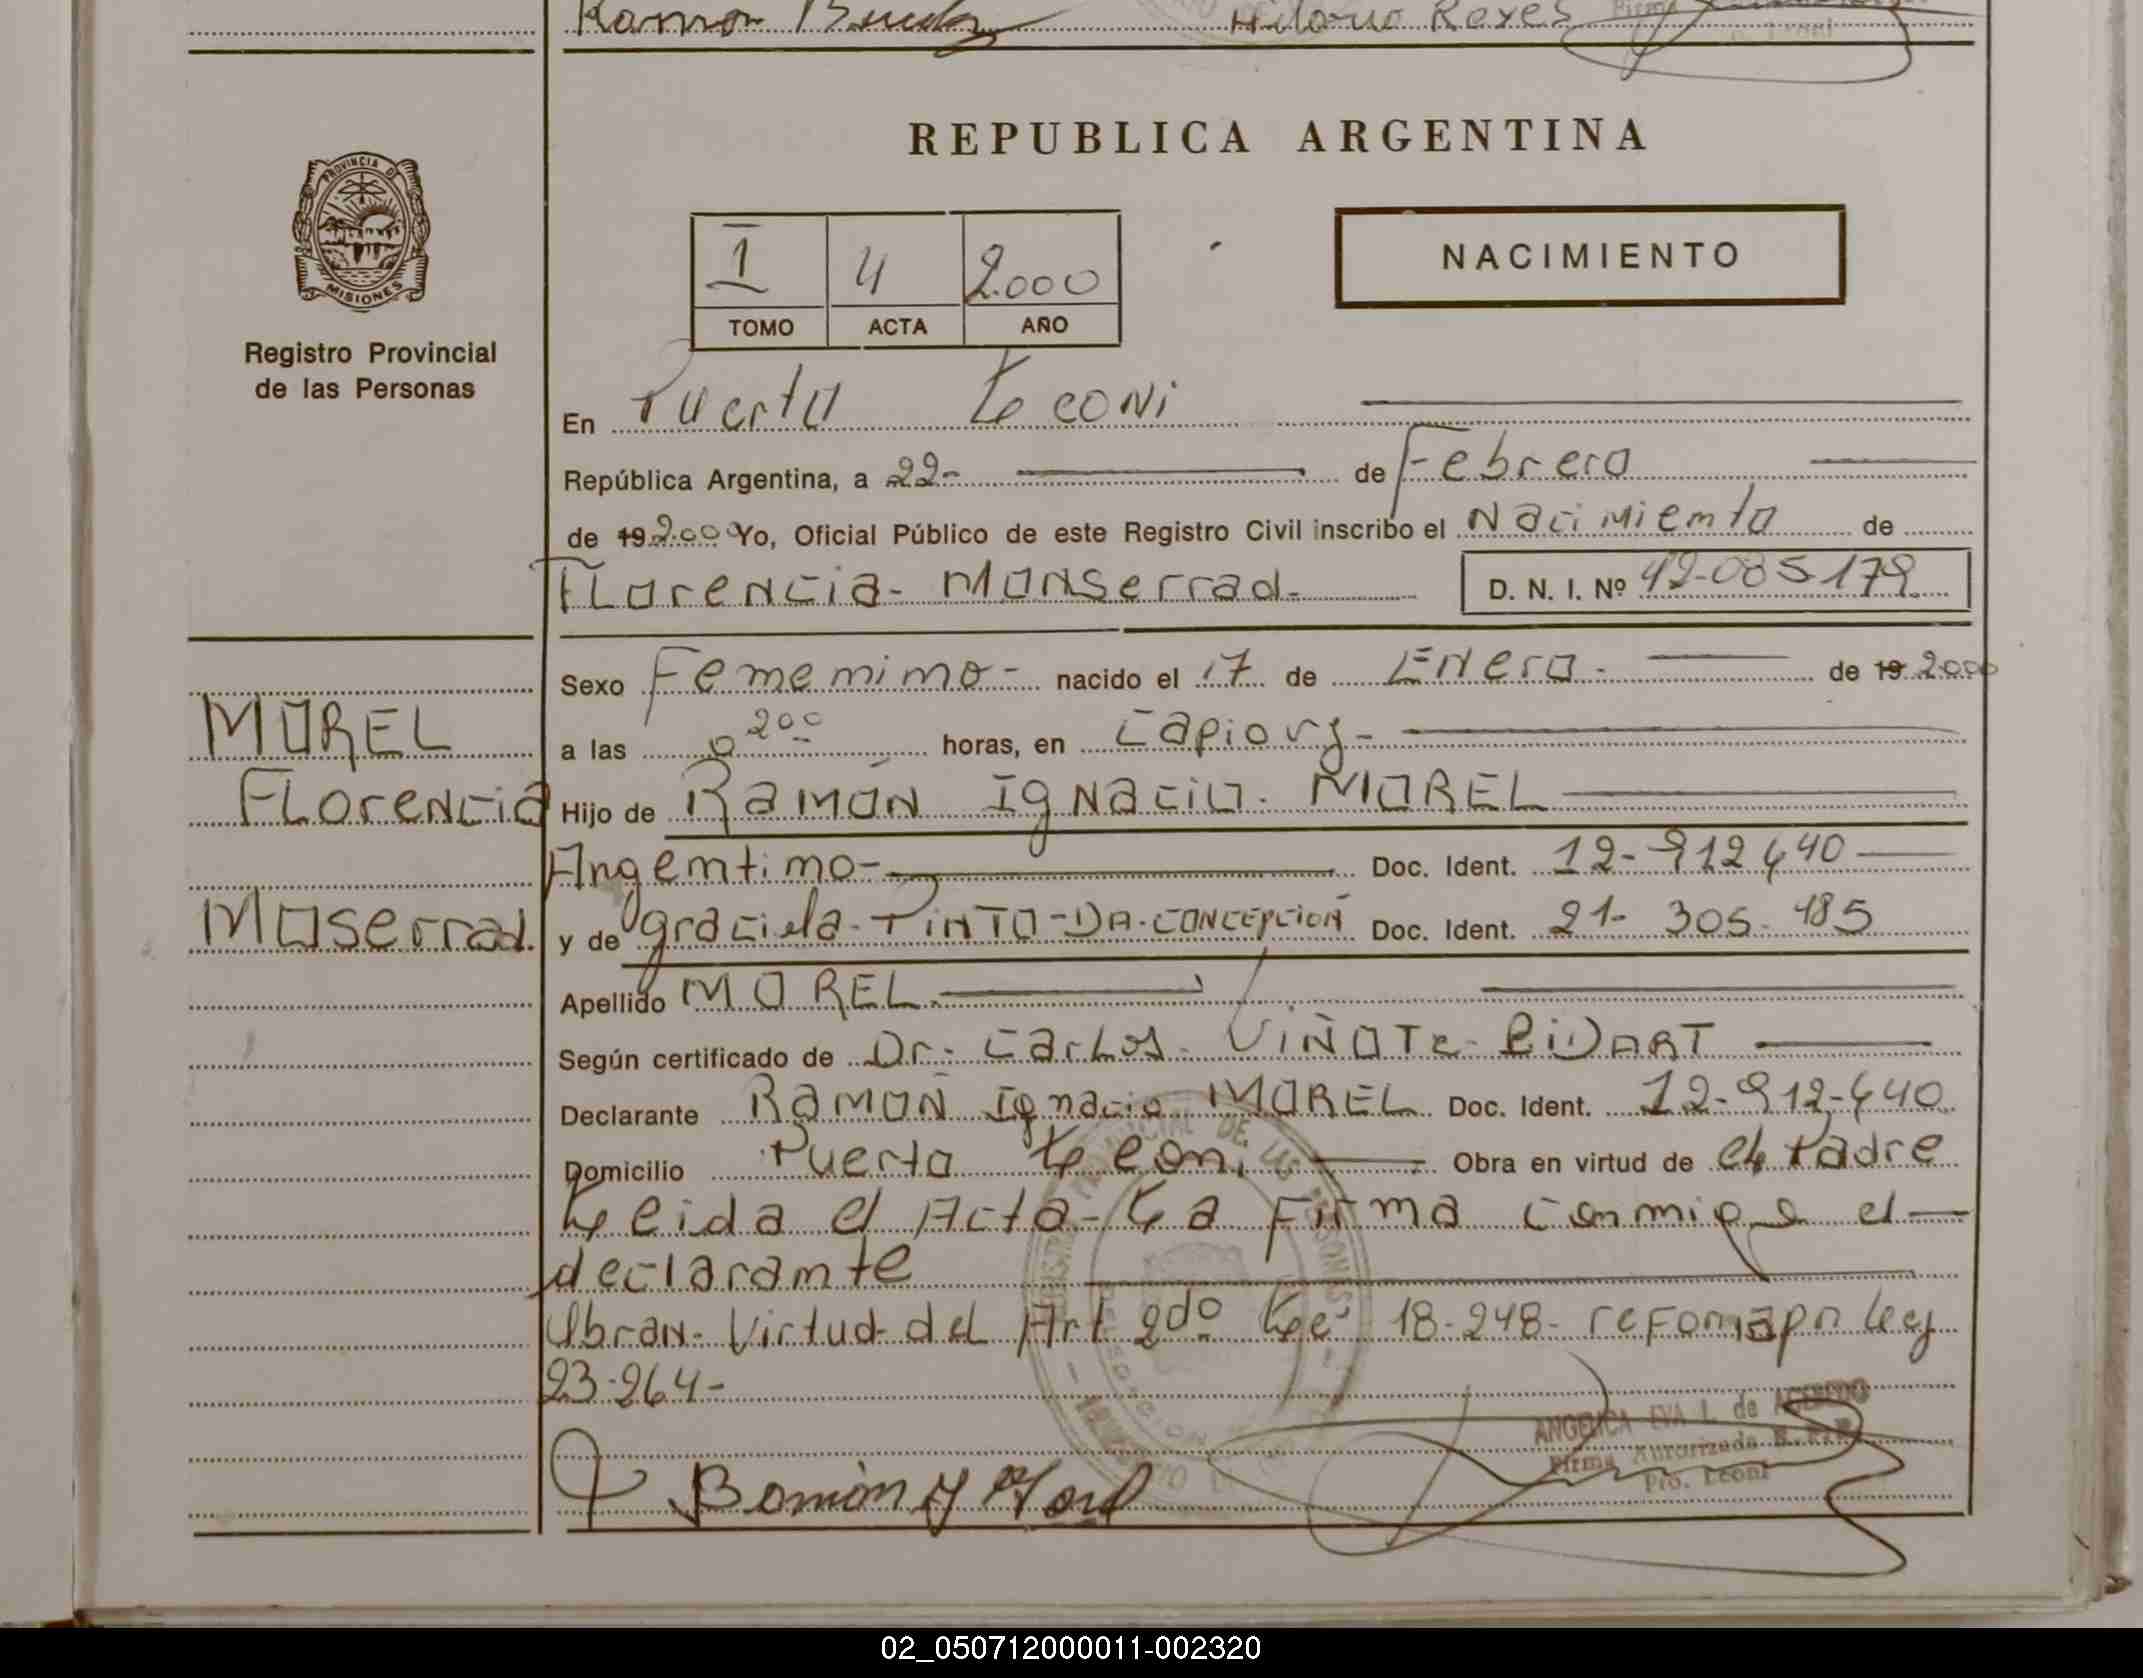 Ramon
Hilario Reyes
REPUBLICA ARGENTINA
PROVINCIA DE
MISIONES
Registro Provincial
de las Personas
I 4 2.000
TOMO ACTA AÑO
NACIMIENTO
En Puerto Leoni
República Argentina, a 22- de Febrero
de 19 2.000 Yo, Oficial Público de este Registro Civil inscribo el Nacimiento de
Florencia- Monserrad-
D. N. I. Nº 42-085-179
Sexo Femenino- nacido el 17 de Enero- de 19 2.000
MOREL
a las 0 200 horas, en Capiovy-
Florencia
Hijo de Ramón Ignacio- MOREL
Argentino- Doc. Ident. 12-912440
Moserrad.
y de graciela- PINTO-DA-CONCEPCION Doc. Ident. 21-305-485
Apellido MOREL
Según certificado de Dr- Carlos- VIÑOTE- BIDART
Declarante Ramon Ignacio MOREL Doc. Ident. 12-912-440
Domicilio Puerto Leoni Obra en virtud de el Padre
Leida el Acta- La Firma conmigo el
declarante
Obran- Virtud del Art 2do Lei 18-248- Ley
23-264-
ANGELICA EVA L. de ACEVEDO
Firma Autorizada
Pto. Leoni
Ramón Y Morel
02_050712000011-002320